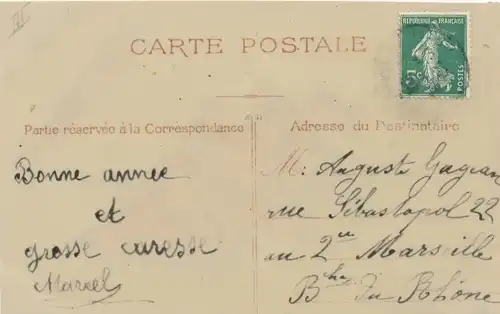 RÉPUBLIQUE FRANÇAISE
5 c
POSTES
CARTE POSTALE
Partie réservée à la Correspondance
Bonne année
et
grosse caresse
Marcel
Adresse du Destinataire
M. Auguste
rue Sébastopol 22
au 2me Marseille
Bhes du Rhône